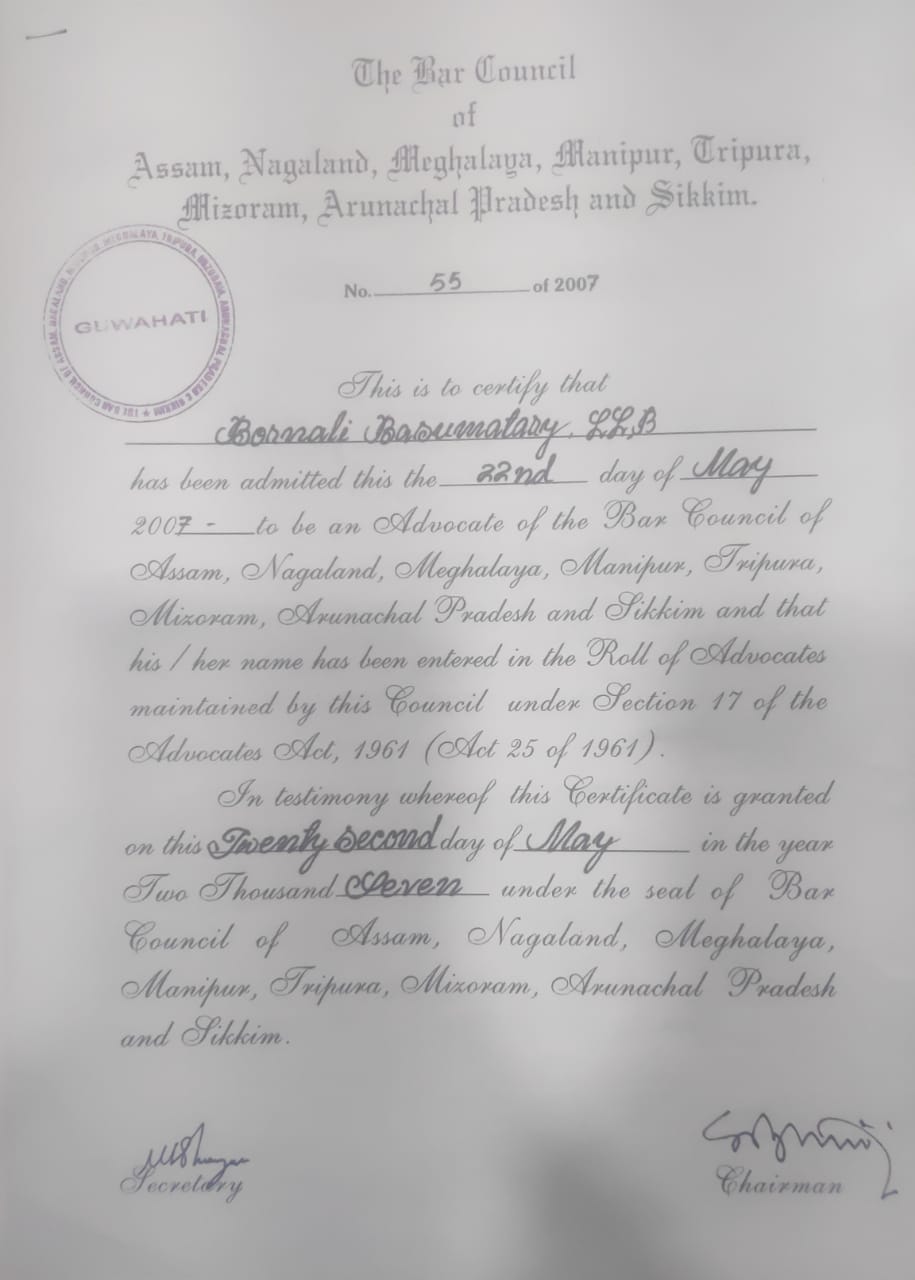 The Bar Council
of
Assam, Nagaland, Meghalaya, Manipur, Tripura,
Mizoram, Arunachal Pradesh and Sikkim.
GUWAHATI
No. 55 of 2007
This is to certify that
Bornali Basumatary, LL,B
has been admitted this the 22nd day of May
2007 - to be an Advocate of the Bar Council of
Assam, Nagaland, Meghalaya, Manipur, Tripura,
Mizoram, Arunachal Pradesh and Sikkim and that
his / her name has been entered in the Roll of Advocates
maintained by this Council under Section 17 of the
Advocates Act, 1961 (Act 25 of 1961).
In testimony whereof this Certificate is granted
on this Twenty second day of May in the year
Two Thousand Seven under the seal of Bar
Council of Assam, Nagaland, Meghalaya,
Manipur, Tripura, Mizoram, Arunachal Pradesh
and Sikkim.
Secretary
Chairman